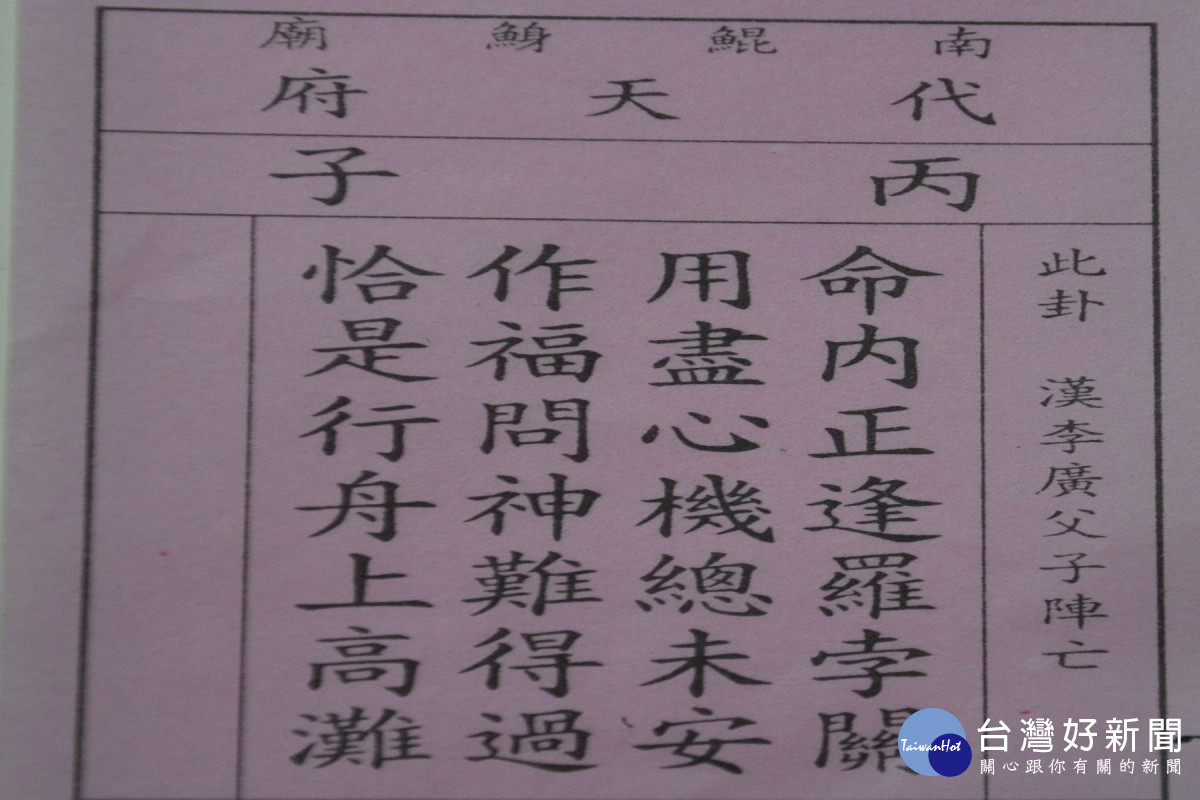 南鯤鯓廟
代天府
丙子
此卦 漢李廣父子陣亡
命內正逢羅孛關
用盡心機總未安
作福問神難得過
恰是行舟上高灘
TaiwanHot
台灣好新聞
關心跟你有關的新聞